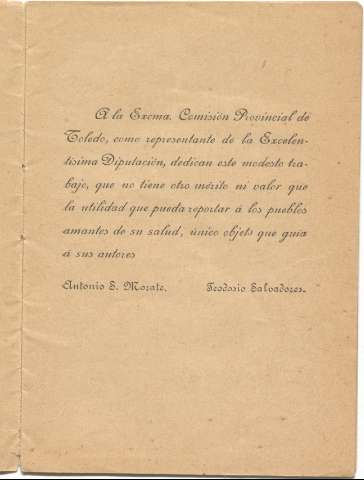 A la Excma. Comisión Provincial de
Toledo, como representante de la Excelen-
tísima Diputación, dedican este modesto tra-
bajo, que no tiene otro mérito ni valor que
la utilidad que pueda reportar á los pueblos
amantes de su salud, único objets que guía
á sus autores
Antonio S. Morate. Teodosio Salvadores.